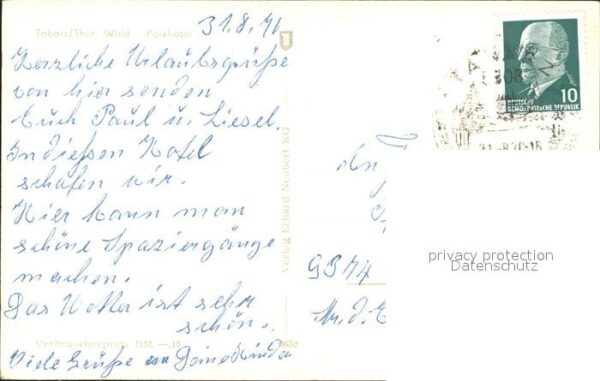 Tabarz/Thür. Wald - Parkhotel
31.8.71
Herzliche Urlaubsgrüße
von hier senden
Euch Paul u. Liesel.
In dießen Hotel
schafen wir.
Hier kann man
schöne Spaziergänge
machen.
Das Wetter ist sehr
schön.
Verbraucherpreis DM —,15
Viele Grüße
Verlag Erhard Neubert KG
10
DEUTSCHE
DEMOKRATISCHE REPUBLIK
An
privacy protection
Datenschutz